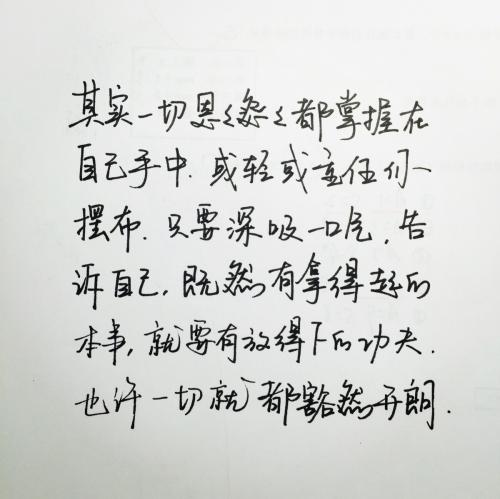 其实一切恩恩怨怨都掌握在
自己手中.或轻或重任你
摆布.只要深吸一口气,告
诉自己,既然有拿得起的
本事,就要有放得下的功夫.
也许一切就都豁然开朗.